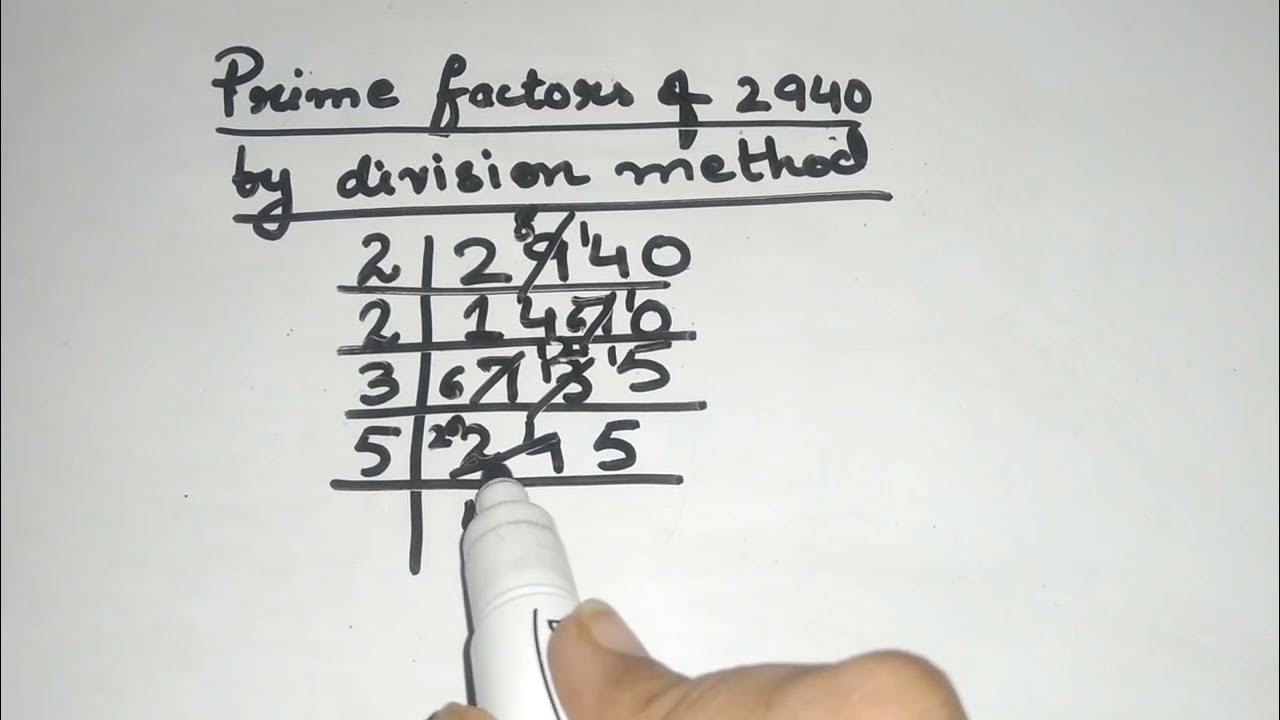 Prime factors of 2940
by division method
2 | 2 9 4 0
2 | 1 4 7 0
3 | 7 3 5
5 | 2 4 5